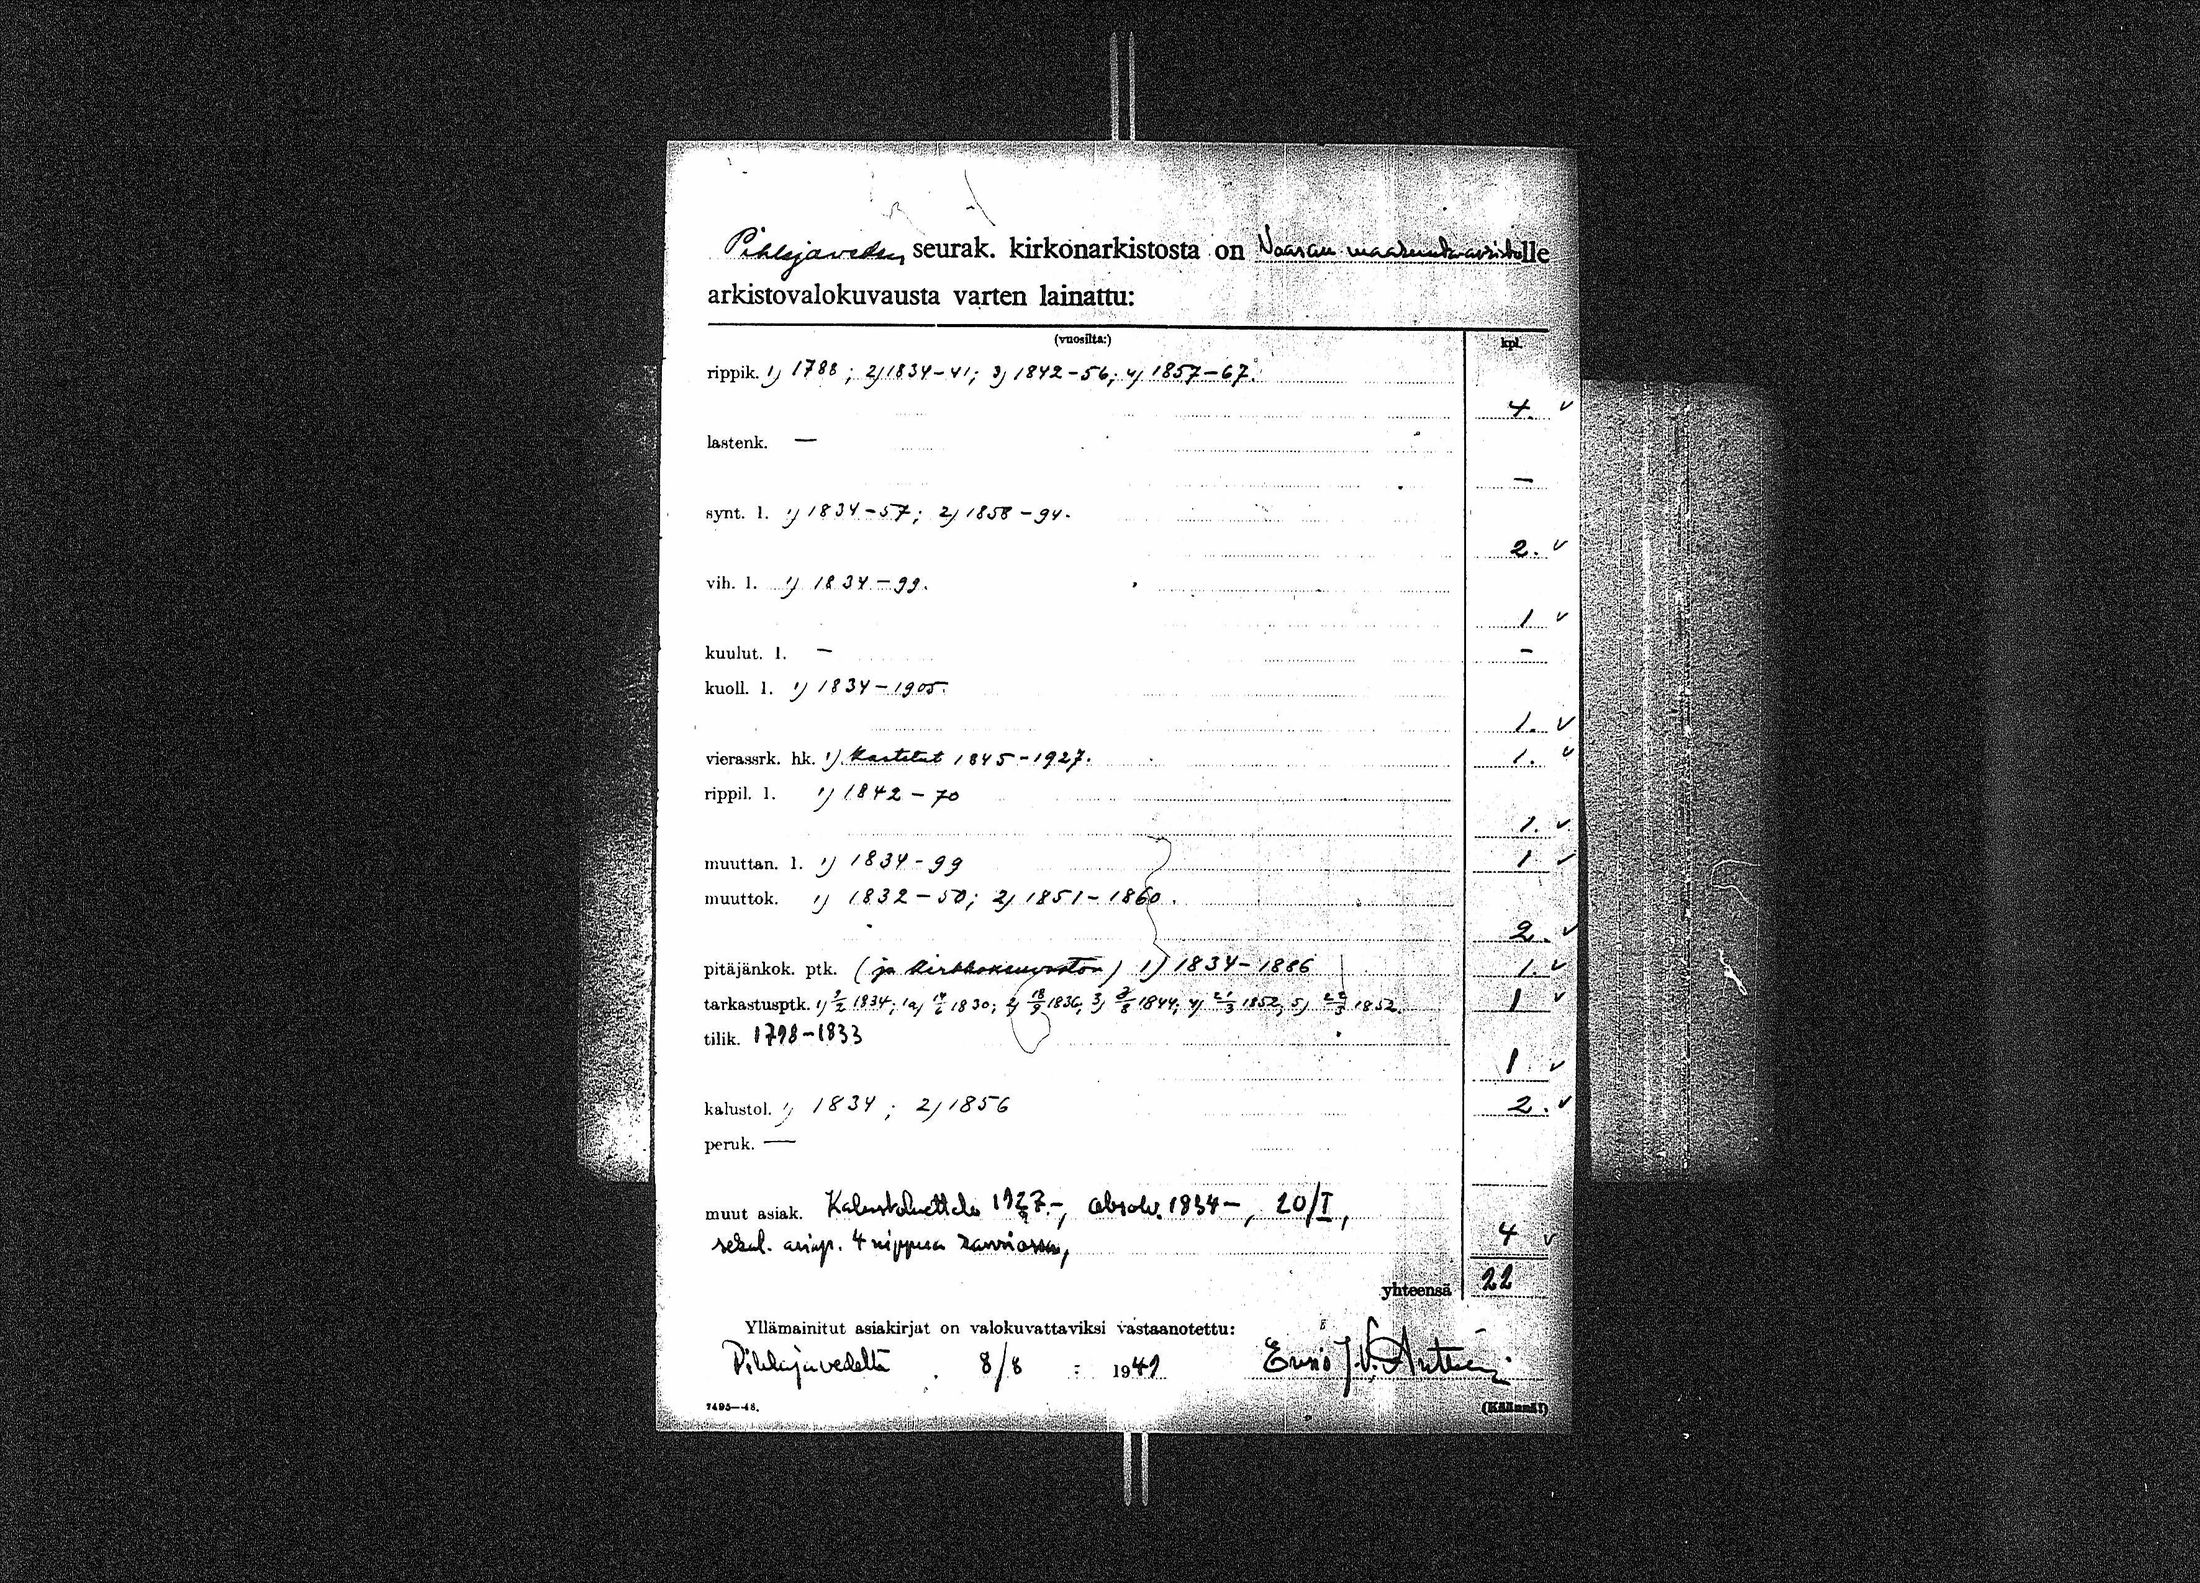 Pihlajaveden seurak. kirkonarkistosta on Vaasan maakunta-arkistolle
arkistovalokuvausta varten lainattu:
(vuosilta:) kpl.
rippik. 1) 1788; 2) 1834-41; 3) 1842-56; 4) 1857-67.
4. v
lastenk. —
—
synt. l. 1) 1834-57; 2) 1858-94.
2. v
vih. l. 1) 1834-99.
1 v
kuulut. l. — —
kuoll. l. 1) 1834-1905.
1. v
vierassrk. hk. 1) Kastetut 1845-1927. 1. v
rippil. l. 1) 1842-70
1. v
muuttan. l. 1) 1834-99 1 v
muuttok. 1) 1832-50; 2) 1851-1860.
2. v
pitäjänkok. ptk. (ja kirkkoneuvoston) 1) 1834-1886 1. v
tarkastusptk. 1) 9/2 1834; 1a) 14/6 1830; 2) 18/9 1836; 3) 8/8 1844; 4) 21/3 1852; 5) 22/3 1852. 1 v
tilik. 1798-1833
1 v
kalustol. 1) 1834; 2) 1856 2. v
peruk. —
muut asiak. Kalustoluettelo 1927-, absolv. 1834-, 20/I,
sekal. asiap. 4 nippua 4 v
yhteensä 22
Yllämainitut asiakirjat on valokuvattaviksi vastaanotettu:
Pihlajavedeltä 8/8 1949
7495—48. (Käännä!)